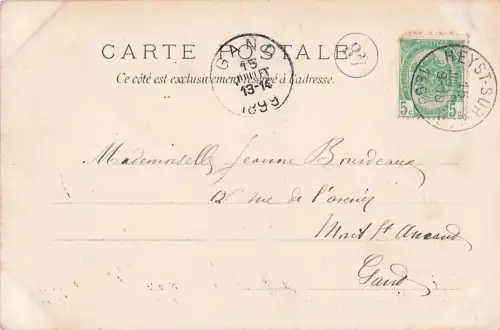 CARTE POSTALE
Ce côté est exclusivement réservé à l'adresse.
GAND
15
JUILLET
13-14
1899
5c
5c
HEYST-SUR
1899
Mademoiselle Jeanne Bourdeaux
12 rue de l'avenir
Mont St Amand
Gand